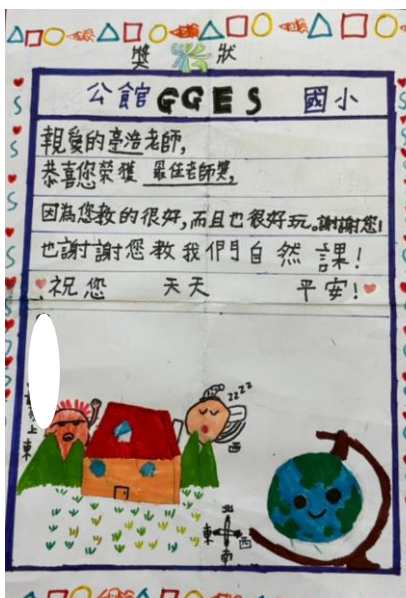 獎 狀
公館 GGES 國小
親愛的亭浩老師,
恭喜您榮獲 最佳老師獎,
因為您教的很好,而且也很好玩。謝謝您!
也謝謝您教我們自然課!
祝您 天天 平安!
zzzz
上
東
西
北
東 西
南